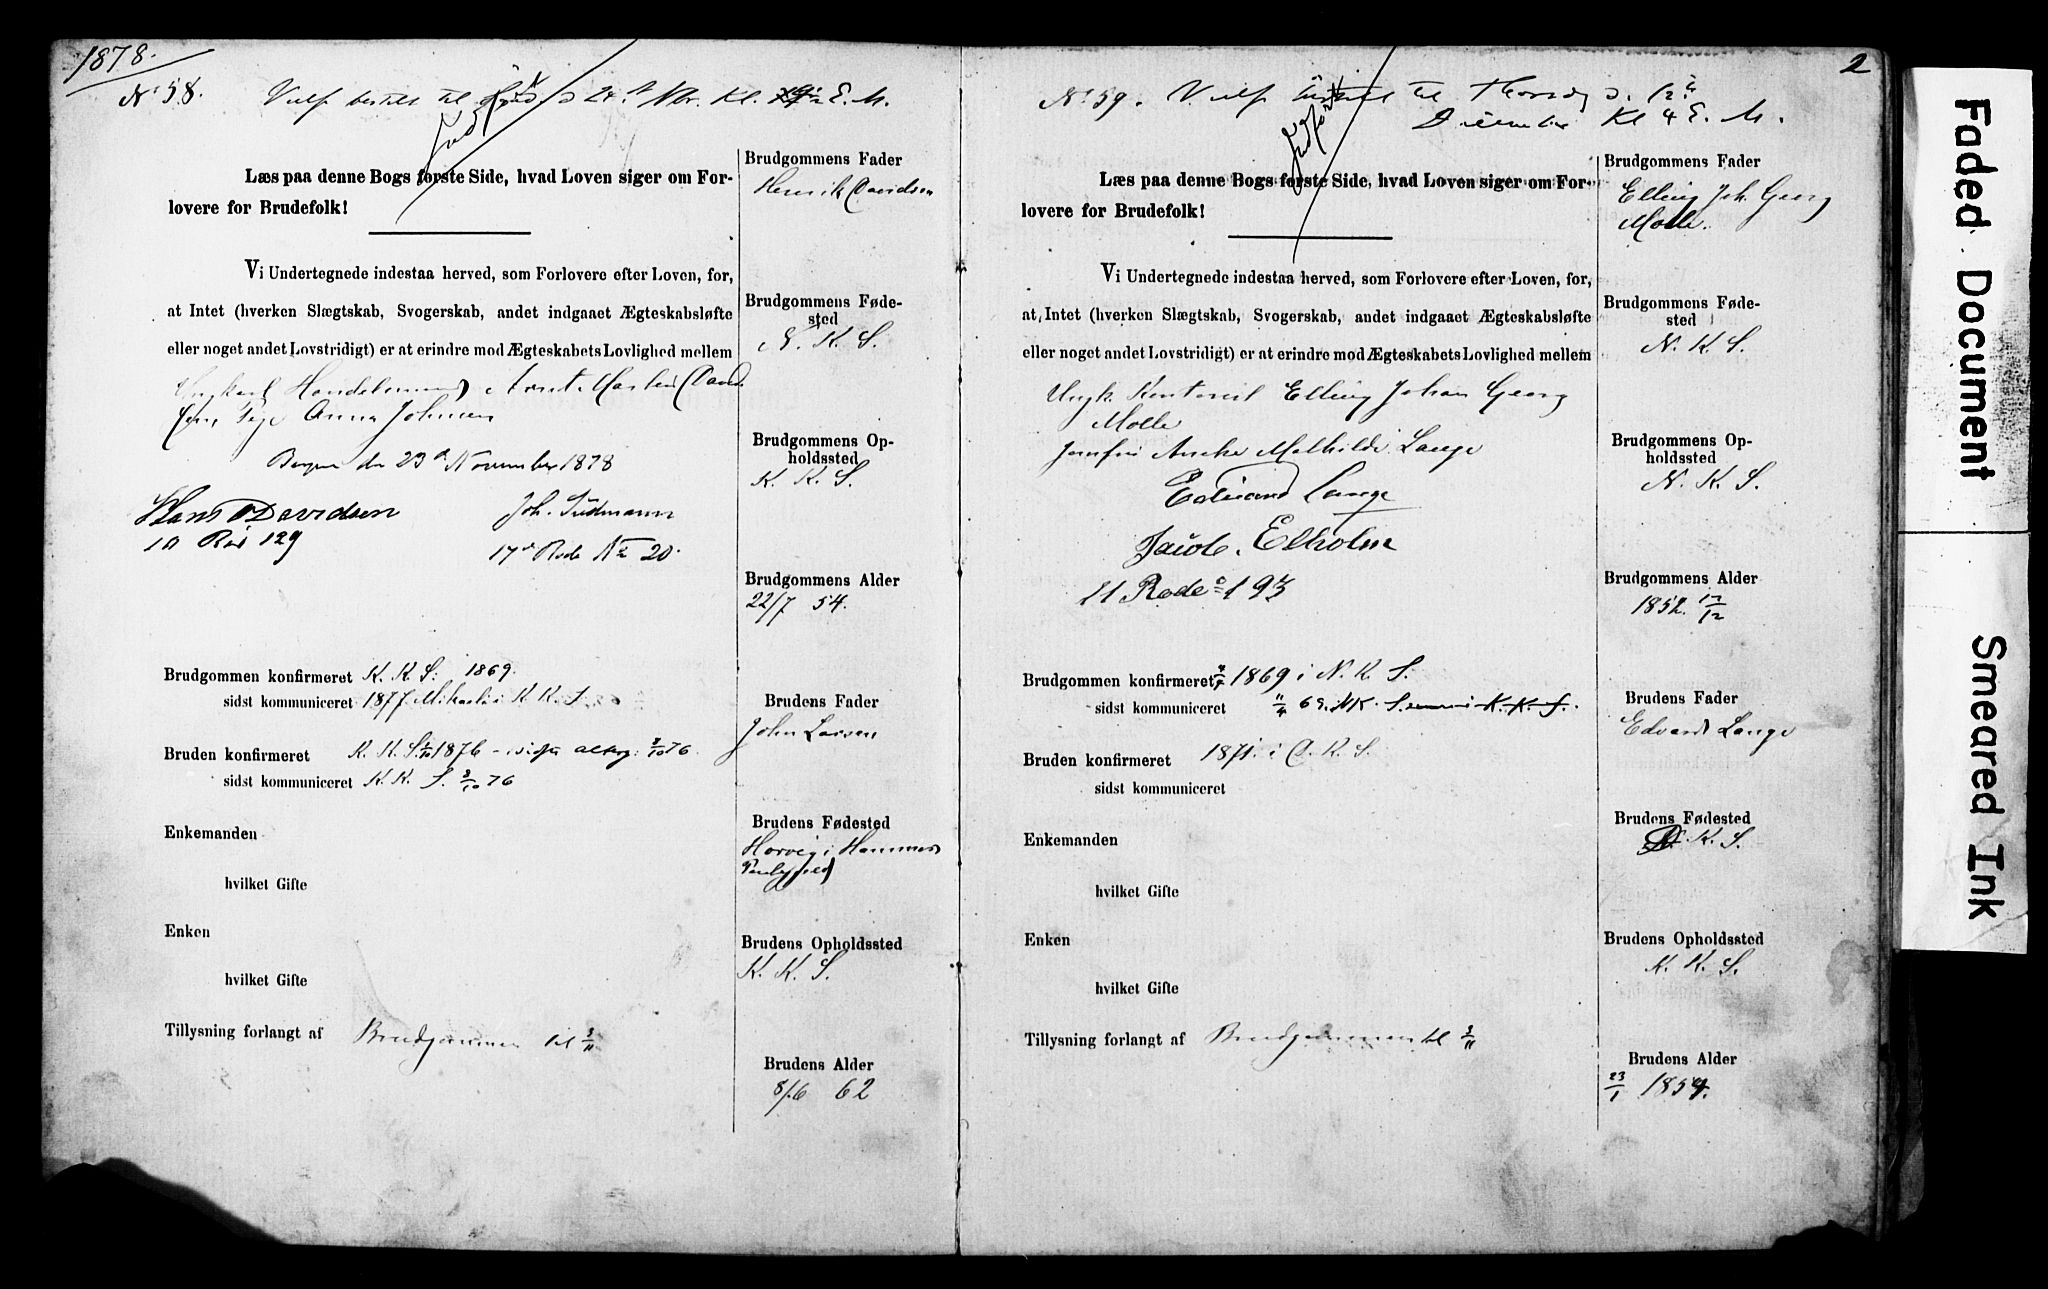 1878.
No 58. Vielse bestilt til d 24de Nbr. Kl. E. M.
Indført
Læs paa denne Bogs første Side, hvad Loven siger om For-
lovere for Brudefolk!
Vi Undertegnede indestaa herved, som Forlovere efter Loven, for,
at Intet (hverken Slægtskab, Svogerskab, andet indgaaet Ægteskabsløfte
eller noget andet Lovstridigt) er at erindre mod Ægteskabets Lovlighed mellem
Ungkarl Handelsmand Arnt Martin David
sen, Pige Anna Johnsen
Bergen den 23de November 1878
Hans Davidsen Joh. Südmann
1ste Rode 129 17de Rode No 20.
Brudgommen konfirmeret K. K. S. 1869.
sidst kommuniceret 1877 Mikaeli i K. K. S.
Bruden konfirmeret K. K. S. 1/10 1876 - sidste alterg: 3/10 76.
sidst kommuniceret K. K. S. 3/10 76
Enkemanden
hvilket Gifte
Enken
hvilket Gifte
Tillysning forlangt af Brudgommen til 3/11
Brudgommens Fader
Henrik Davidsen
Brudgommens Føde-
sted
N. K. S.
Brudgommens Op-
holdssted
K. K. S.
Brudgommens Alder
22/7 54.
Brudens Fader
John Larsen
Brudens Fødested
Horvig i Hammers
Brudens Opholdssted
K. K. S.
Brudens Alder
8/6 62
2
No 59. Vielse bestilt til Thorsdag d. 12te
December Kl 4 E. M.
Indført
Læs paa denne Bogs første Side, hvad Loven siger om For-
lovere for Brudefolk!
Vi Undertegnede indestaa herved, som Forlovere efter Loven, for,
at Intet (hverken Slægtskab, Svogerskab, andet indgaaet Ægteskabsløfte
eller noget andet Lovstridigt) er at erindre mod Ægteskabets Lovlighed mellem
Ungk. Kontorist Elling Johan Georg
Molle
Jomfru Mathilde Lange
Edvard Lange
Jacob. Elholm
11 Rode 193
Brudgommen konfirmeret 4/4 1869 i N. K. S.
sidst kommuniceret 11/4 69. N K. S. i K. K. S.
Bruden konfirmeret 1871. i D. K. S.
sidst kommuniceret
Enkemanden
hvilket Gifte
Enken
hvilket Gifte
Tillysning forlangt af Brudgommen til 3/11
Brudgommens Fader
Elling Joh. Georg
Molle.
Brudgommens Føde-
sted
N. K. S.
Brudgommens Op-
holdssted
N. K. S.
Brudgommens Alder
1852. 17/12
Brudens Fader
Edvard Lange
Brudens Fødested
K. S.
Brudens Opholdssted
N. K. S.
Brudens Alder
23/1 1854.
Faded Document
Smeared Ink